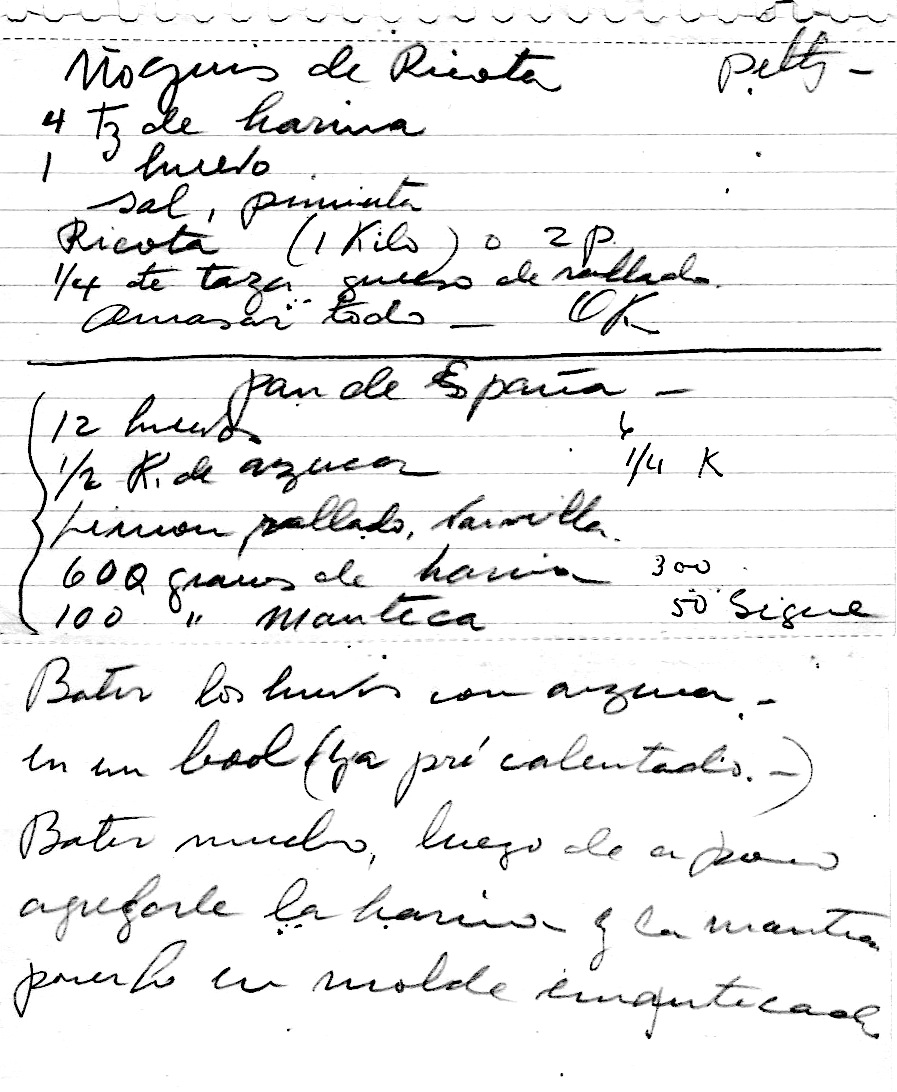 Ñoquis de Ricota Petty -
4 Tz de harina
1 huevo
sal, pimienta
Ricota (1 Kilo) o 2 p.
1/4 de taza queso de rallado.
Amasar todo - OK
Pan de España -
12 huevos 6
1/2 K. de azucar 1/4 K
Limon rallado, vainilla.
600 gramos de harina 300
100 " manteca 50 Sigue
Batir los huevos con azucar. -
en un bool (ya pré calentado. -)
Batir mucho, luego de a poco
agregarle la harina y la manteca
ponerlo en molde enmantecado